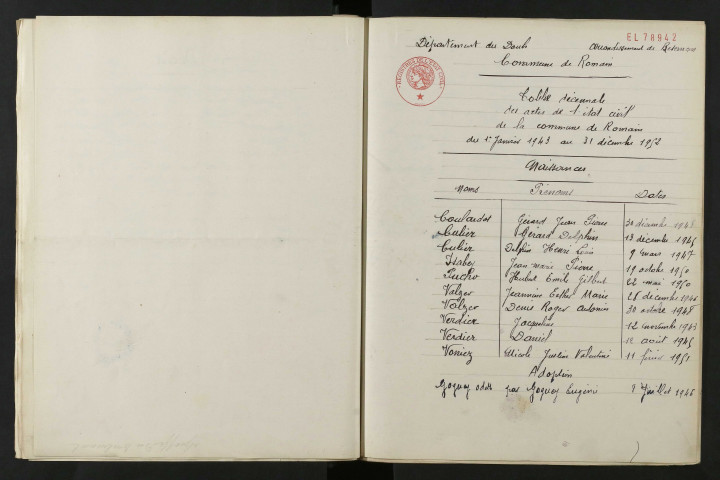 EL 78942
Département du Doubs arrondissement de Besançon
Commune de Romain
Table décennale
des actes de l'état civil
de la commune de Romain
du 1er Janvier 1943 au 31 décembre 1952
Naissances
Noms Prénoms Dates
Coulardot Gérard Jean Pierre 30 décembre 1943
Culier Gérard Delphin 13 décembre 1945
Culier Delphin Henri Louis 9 mars 1947
Isabey Jean marie Pierre 19 octobre 1950
Hubert Emile Gilbert 22 mai 1950
Valzer Jeannine Esther Marie 28 décembre 1946
Valzer Denis Roger Antonin 30 octobre 1948
Verdier Jacqueline 12 novembre 1943
Verdier Daniel 12 août 1945
Nicole Justin Valentine 11 février 1951
Adoption
par Eugénie Juillet 1946